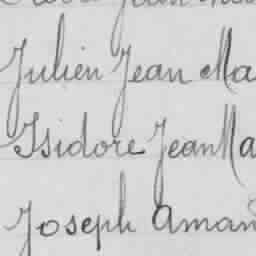 Julien Jean Ma
Isidore Jean Ma
Joseph Aman